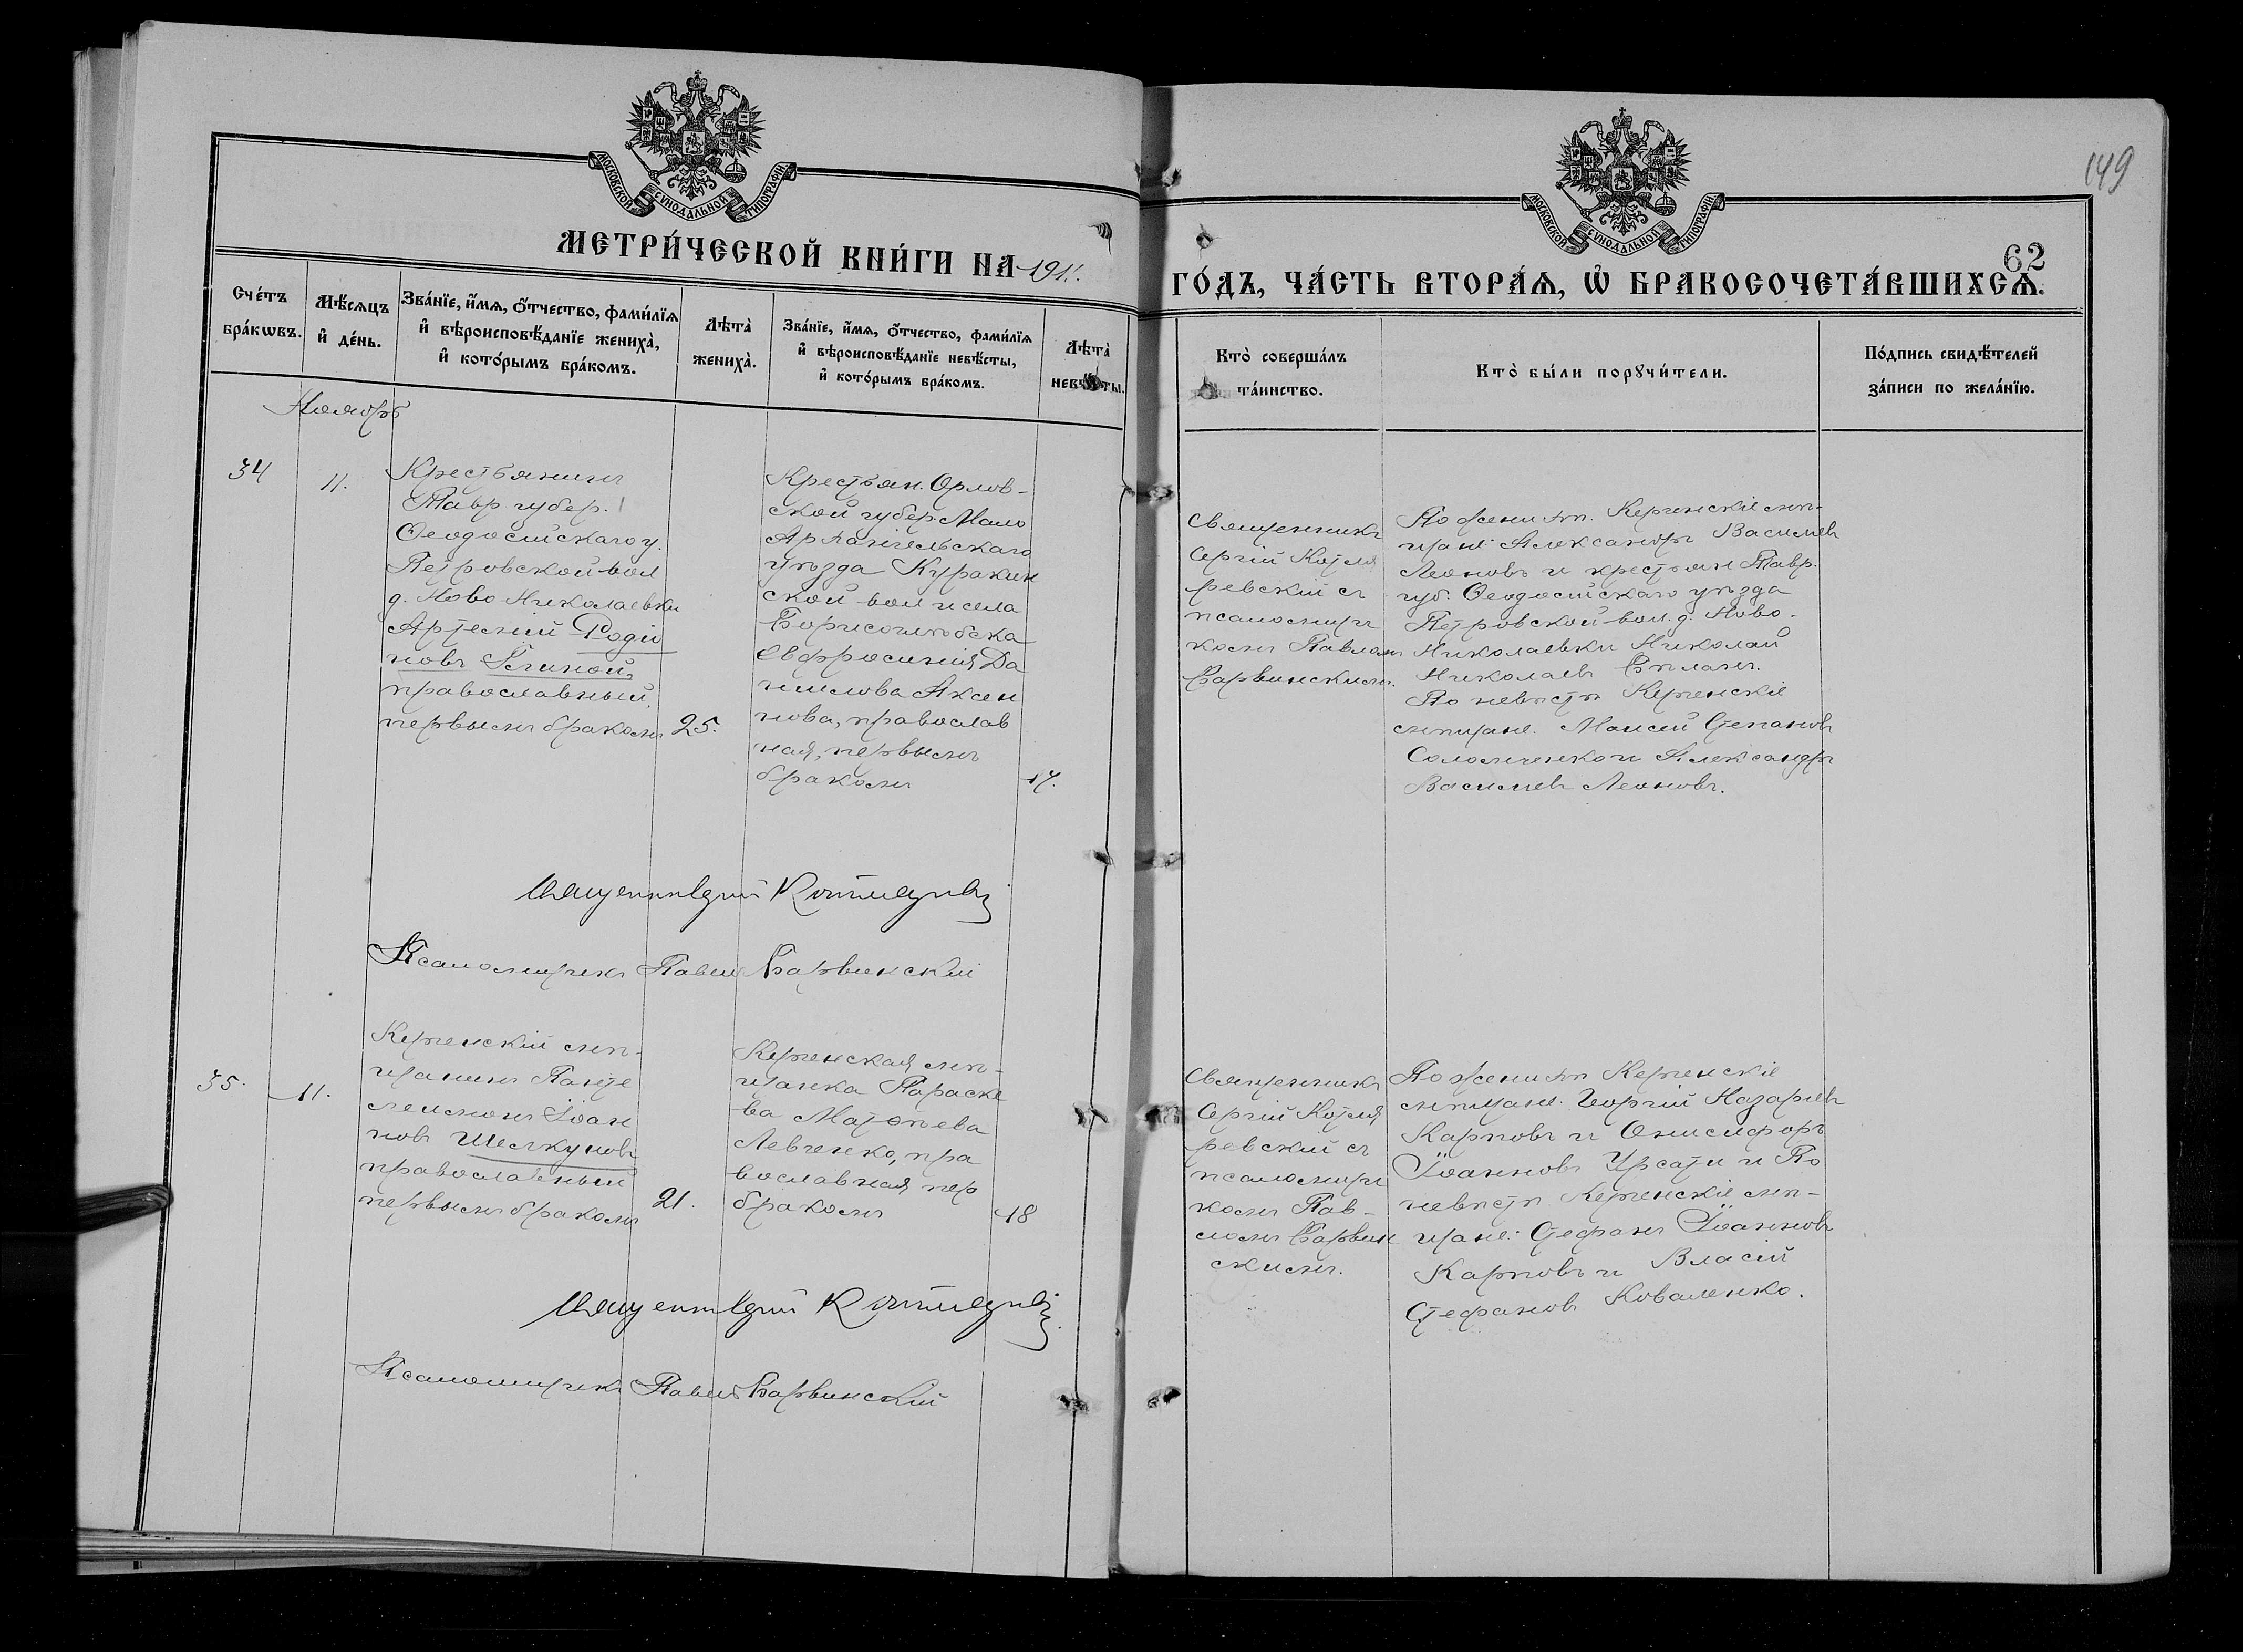 149
62
МОСКОВСКОЙ СѴНОДАЛЬНОЙ ТИПОГРАФІИ
МОСКОВСКОЙ СѴНОДАЛЬНОЙ ТИПОГРАФІИ
МЕТРИ́ЧЕСКОЙ КНИ́ГИ НА 1911.
ГО́ДЪ, ЧА́СТЬ ВТОРА́Ѧ, Ѽ БРАКОСОЧЕТА́ВШИХСѦ.
Сче́тъ
бра́кѡвъ.
Мѣ́сѧцъ
и҆ де́нь.
Зва́нїе, и҆́мѧ, ѻ҆́тчество, фами́лїѧ
и҆ вѣроисповѣ́данїе жениха̀,
и҆ кото́рымъ бра́комъ.
Лѣта̀
жениха̀.
Зва́нїе, и҆́мѧ, ѻ҆́тчество, фами́лїѧ
и҆ вѣроисповѣ́данїе невѣ́сты,
и҆ кото́рымъ бра́комъ.
Лѣта̀
невѣ́сты.
Кто̀ соверша́лъ
та́инство.
Кто̀ бы́ли порꙋчи́тели.
По́дпись свидѣ́телей
за́писи по жела́нїю.
Ноябрь
34
11.
Крестьянинъ
Тавр. губер.
Ѳеодосійскаго у.
Петровской вол
д. Ново Николаевки
Артемій Родіо
новъ Глиной,
православный,
первымъ бракомъ
25.
Крестьян. Орлов-
ской губер Мало
Архангельскаго
уѣзда Куракин
ской вол и села
Борисоглѣбска
Евфросинія Да
нилова Аксен
нова, православ
ная, первымъ
бракомъ
17.
Священникъ
Сергій Котля
ревскій съ
псаломщи
комъ Павломъ
Барвинскимъ.
По женихѣ. Керченскіе мѣ-
щане: Александръ Васильевъ
Леоновъ и крестьян Тавр.
губ. Ѳеодосійскаго уѣзда
Петровской вол. д. Ново-
Николаевки Николай
Николаевъ Бѣланъ.
По невѣстѣ Керченскіе
мѣщане. Моисей Степановъ
Соломченко и Александръ
Васильевъ Леоновъ.
Священникъ Сергій Котляревскій
Псаломщикъ Павелъ Барвинскій
35.
11.
Керченскій мѣ-
щанинъ Панте
леимонъ Іоан
новъ Шелкуновъ
православный
первымъ бракомъ
21.
Керченская мѣ-
щанка Параске
ва Матѳеева
Левченко, пра
вославная, пер
бракомъ
18
Священникъ
Сергій Котля
ревскій съ
псаломщи
комъ Пав-
ломъ Барвин
скимъ.
По женихѣ Керченскіе
мѣщане: Георгій Назарьевъ
Карповъ и Онисифоръ
Іоанновъ Урсати и По
невѣстѣ Керченскіе мѣ-
щане: Стефанъ Іоанновъ
Карповъ и Власій
Стефановъ Коваленко.
Священникъ Сергій Котляревскій
Псаломщикъ Павелъ Барвинскій